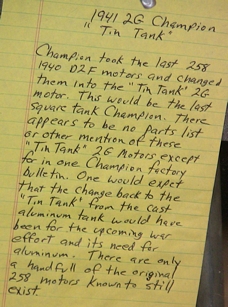 1941 2G Champion
"Tin Tank"
Champion took the last 258
1940 D2F motors and changed
them into the "Tin Tank" 2G
motor. This would be the last
square tank Champion. There
appears to be no parts list
or other mention of these
"Tin Tank" 2G Motors except
for in one Champion factory
bulletin. One would expet
that the change back to the
"Tin Tank" from the cast
aluminum tank would have
been for the upcoming war
effort and its need for
aluminum. There are only
a handfull of the original
258 motors known to still
exist.